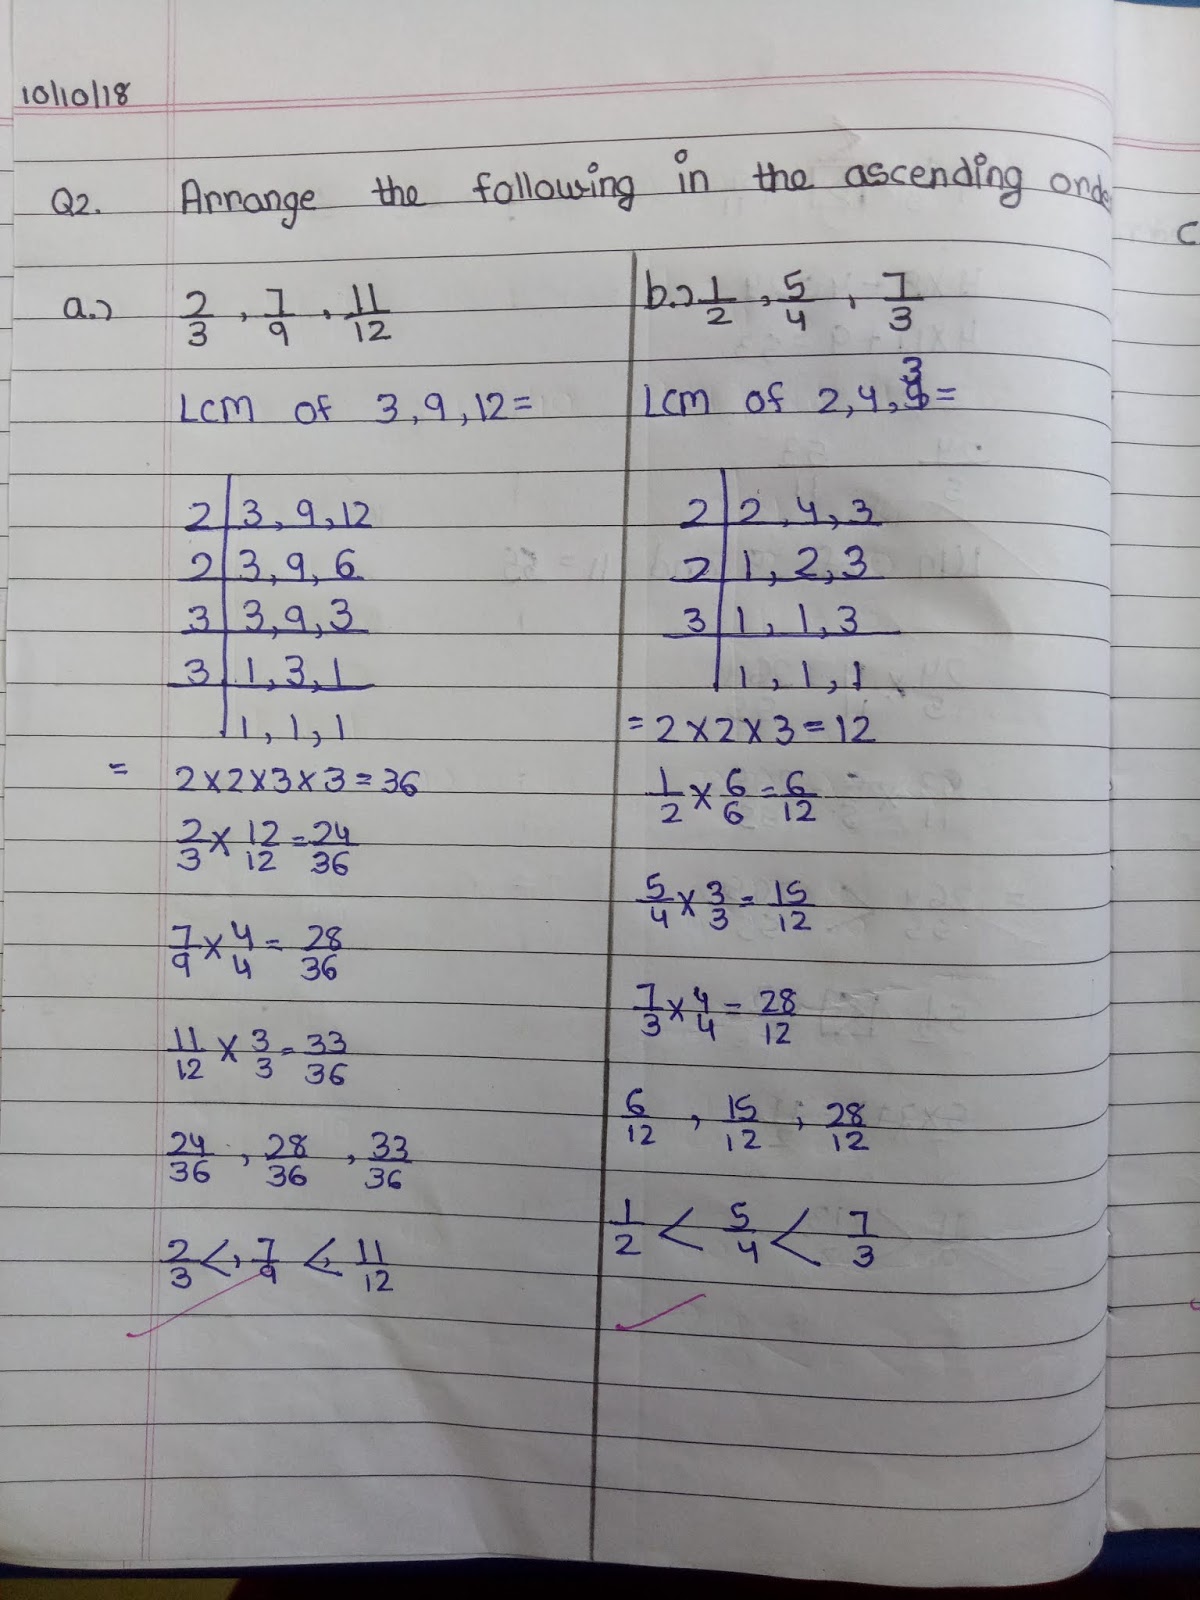 10/10/18
Q2. Arrange the following in the ascending orde
a.) 2/3, 7/9, 11/12
LCM of 3, 9, 12 =
2 | 3, 9, 12
2 | 3, 9, 6
3 | 3, 9, 3
3 | 1, 3, 1
1, 1, 1
= 2 × 2 × 3 × 3 = 36
2/3 × 12/12 = 24/36
7/9 × 4/4 = 28/36
11/12 × 3/3 = 33/36
24/36, 28/36, 33/36
2/3 < 7/9 < 11/12
b.) 1/2, 5/4, 7/3
LCM of 2, 4, 3 =
2 | 2, 4, 3
2 | 1, 2, 3
3 | 1, 1, 3
1, 1, 1
= 2 × 2 × 3 = 12
1/2 × 6/6 = 6/12
5/4 × 3/3 = 15/12
7/3 × 4/4 = 28/12
6/12, 15/12, 28/12
1/2 < 5/4 < 7/3
C